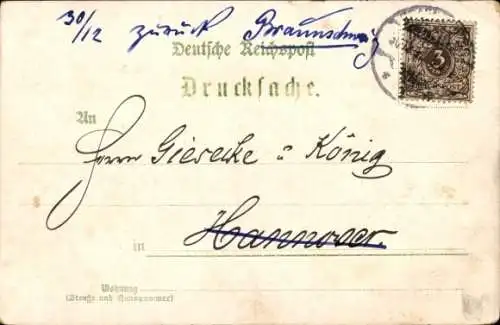 30/12 zurück Braunschweig
Deutsche Reichspost
Drucksache.
3
An
Herrn Giesecke u König
Hannover.
in
Wohnung
(Straße und Hausnummer)